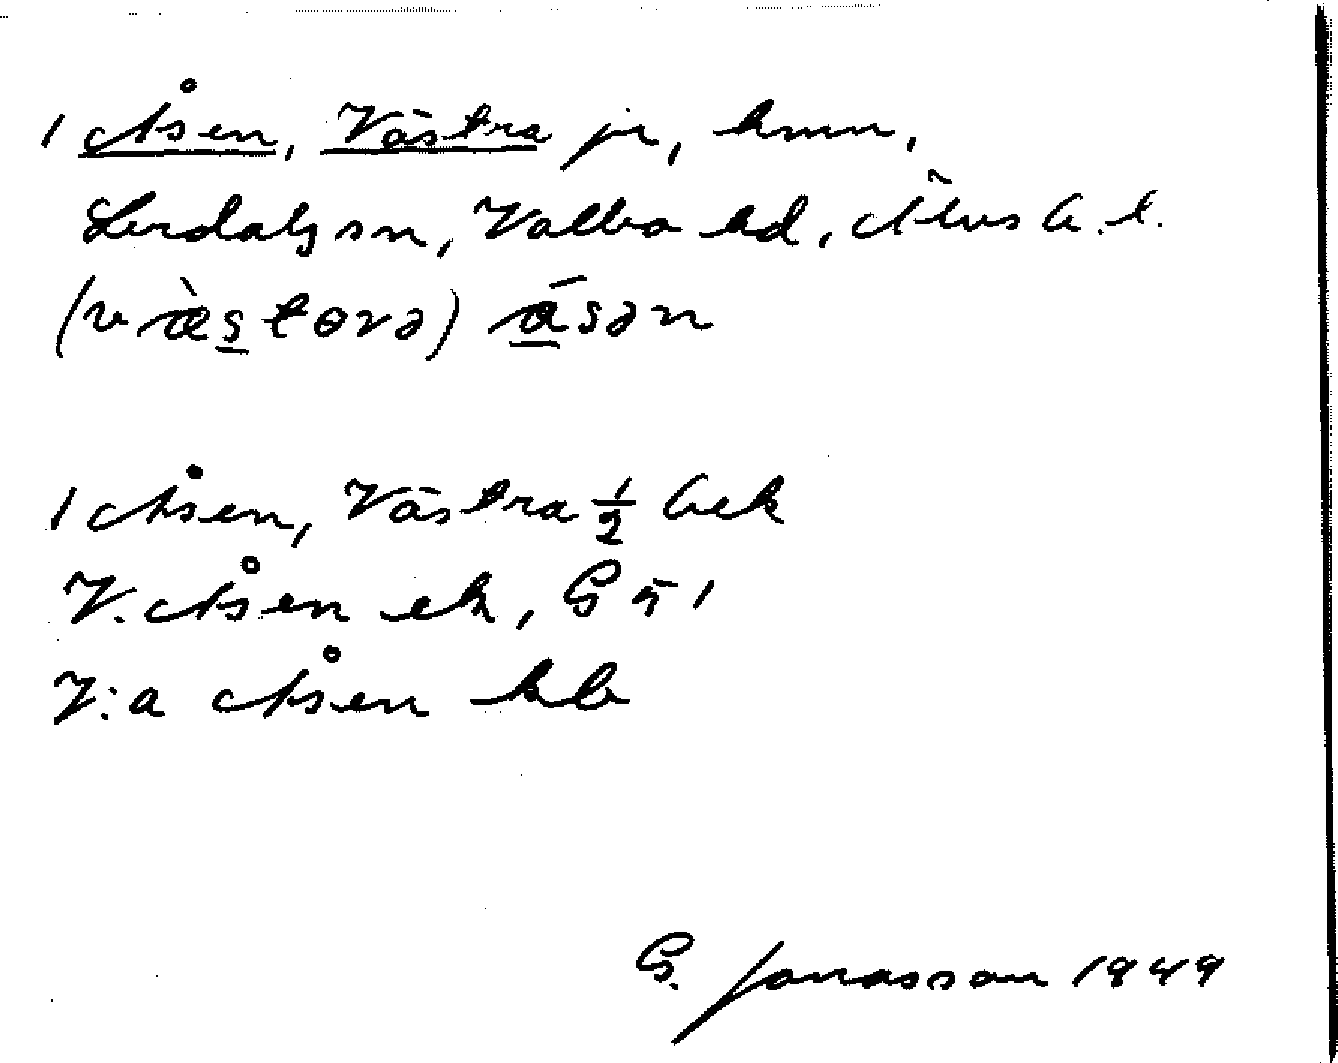 1 Åsen, Västra jr, hmn,
Lerdals sn, Valbo hd, Älvsb. l.
(væ̀stərə) åsən
1 Åsen, Västra ½ bek
V. Åsen ek, G ä 1
V:a Åsen hb
G. Jonasson 1949